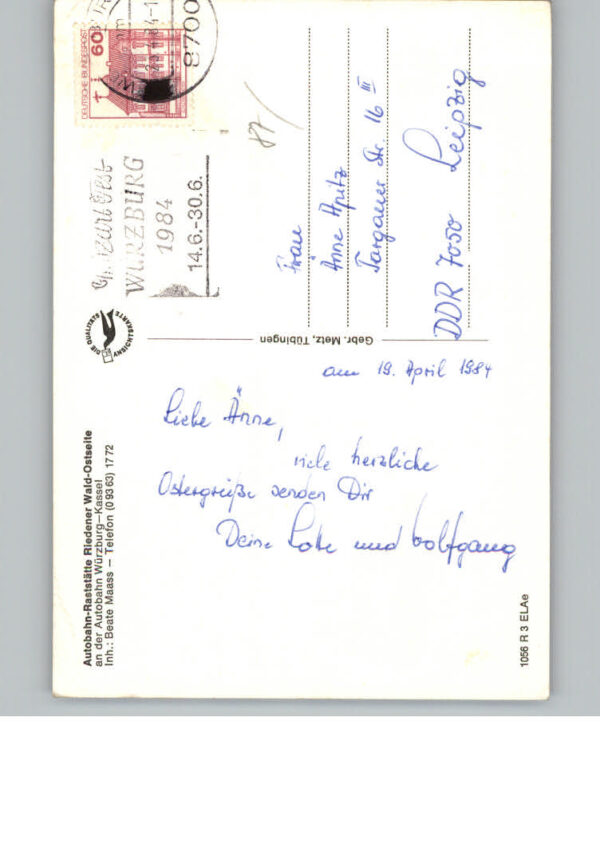 am 19. April 1984
Liebe Änne,
viele herzliche
Ostergrüße senden Dir
Deine Lotte und Wolfgang
Frau
Änne Apitz
Torgauer Str. 16 III
DDR 7050 Leipzig
87/
DEUTSCHE BUNDESPOST
60
8700
Mozartfest
WÜRZBURG
1984
14.6.-30.6.
DIE QUALITÄTS
ANSICHTSKARTE
Gebr. Metz, Tübingen
Autobahn-Raststätte Riedener Wald-Ostseite
an der Autobahn Würzburg–Kassel
Inh.: Beate Maass – Telefon (0 93 63) 17 72
1056 R 3 ELAe